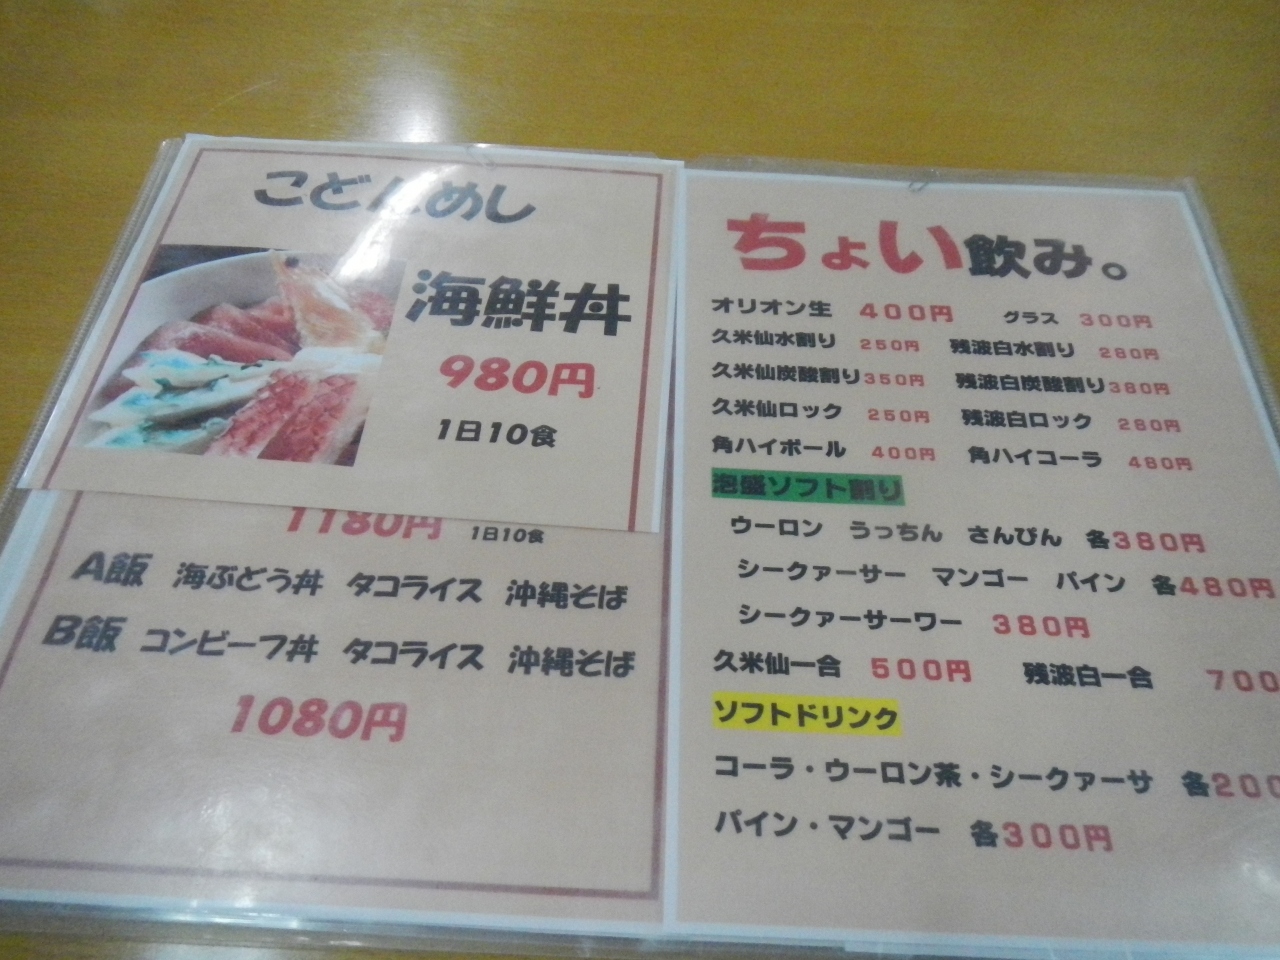 こどんめし
海鮮丼
980円
1日10食
1180円 1日10食
A飯 海ぶどう丼 タコライス 沖縄そば
B飯 コンビーフ丼 タコライス 沖縄そば
1080円
ちょい飲み。
オリオン生 400円 グラス 300円
久米仙水割り 250円 残波白水割り 280円
久米仙炭酸割り350円 残波白炭酸割り380円
久米仙ロック 250円 残波白ロック 280円
角ハイボール 400円 角ハイコーラ 480円
泡盛ソフト割り
ウーロン うっちん さんぴん 各380円
シークァーサー マンゴー パイン 各480円
シークァーサーワー 380円
久米仙一合 500円 残波白一合 700
ソフトドリンク
コーラ・ウーロン茶・シークァーサ 各200
パイン・マンゴー 各300円